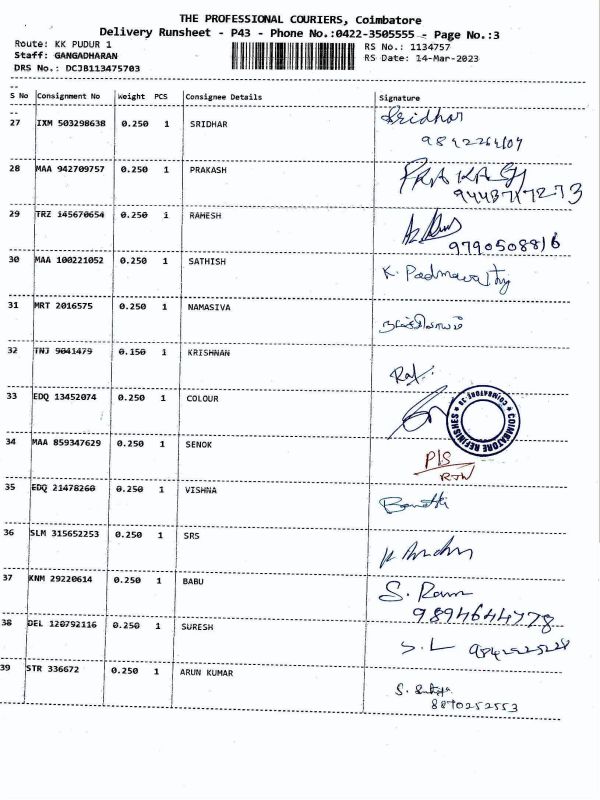 THE PROFESSIONAL COURIERS, Coimbatore
Delivery Runsheet - P43 - Phone No.:0422-3505555 - Page No.:3
Route: KK PUDUR 1
Staff: GANGADHARAN
DRS No.: DCJB113475703
RS No.: 1134757
RS Date: 14-Mar-2023
S No Consignment No Weight PCS Consignee Details Signature
27 IXM 503298638 0.250 1 SRIDHAR Sridhar
28 MAA 942709757 0.250 1 PRAKASH PRAKASH
29 TRZ 145670654 0.250 1 RAMESH
9790508816
30 MAA 100221052 0.250 1 SATHISH K. Padmavathy
31 MRT 2016575 0.250 1 NAMASIVA
நமசிவாயம்
32 TNJ 9041479 0.150 1 KRISHNAN
33 EDQ 13452074 0.250 1 COLOUR
COIMBATORE REFINISHES
COIMBATORE
34 MAA 859347629 0.250 1 SENOK
P/S
RTN
35 EDQ 21478260 0.250 1 VISHNA
36 SLM 315652253 0.250 1 SRS
37 KNM 29220614 0.250 1 BABU S. Ram
9894644778
38 DEL 120792116 0.250 1 SURESH S.L
39 STR 336672 0.250 1 ARUN KUMAR S.
8870252553